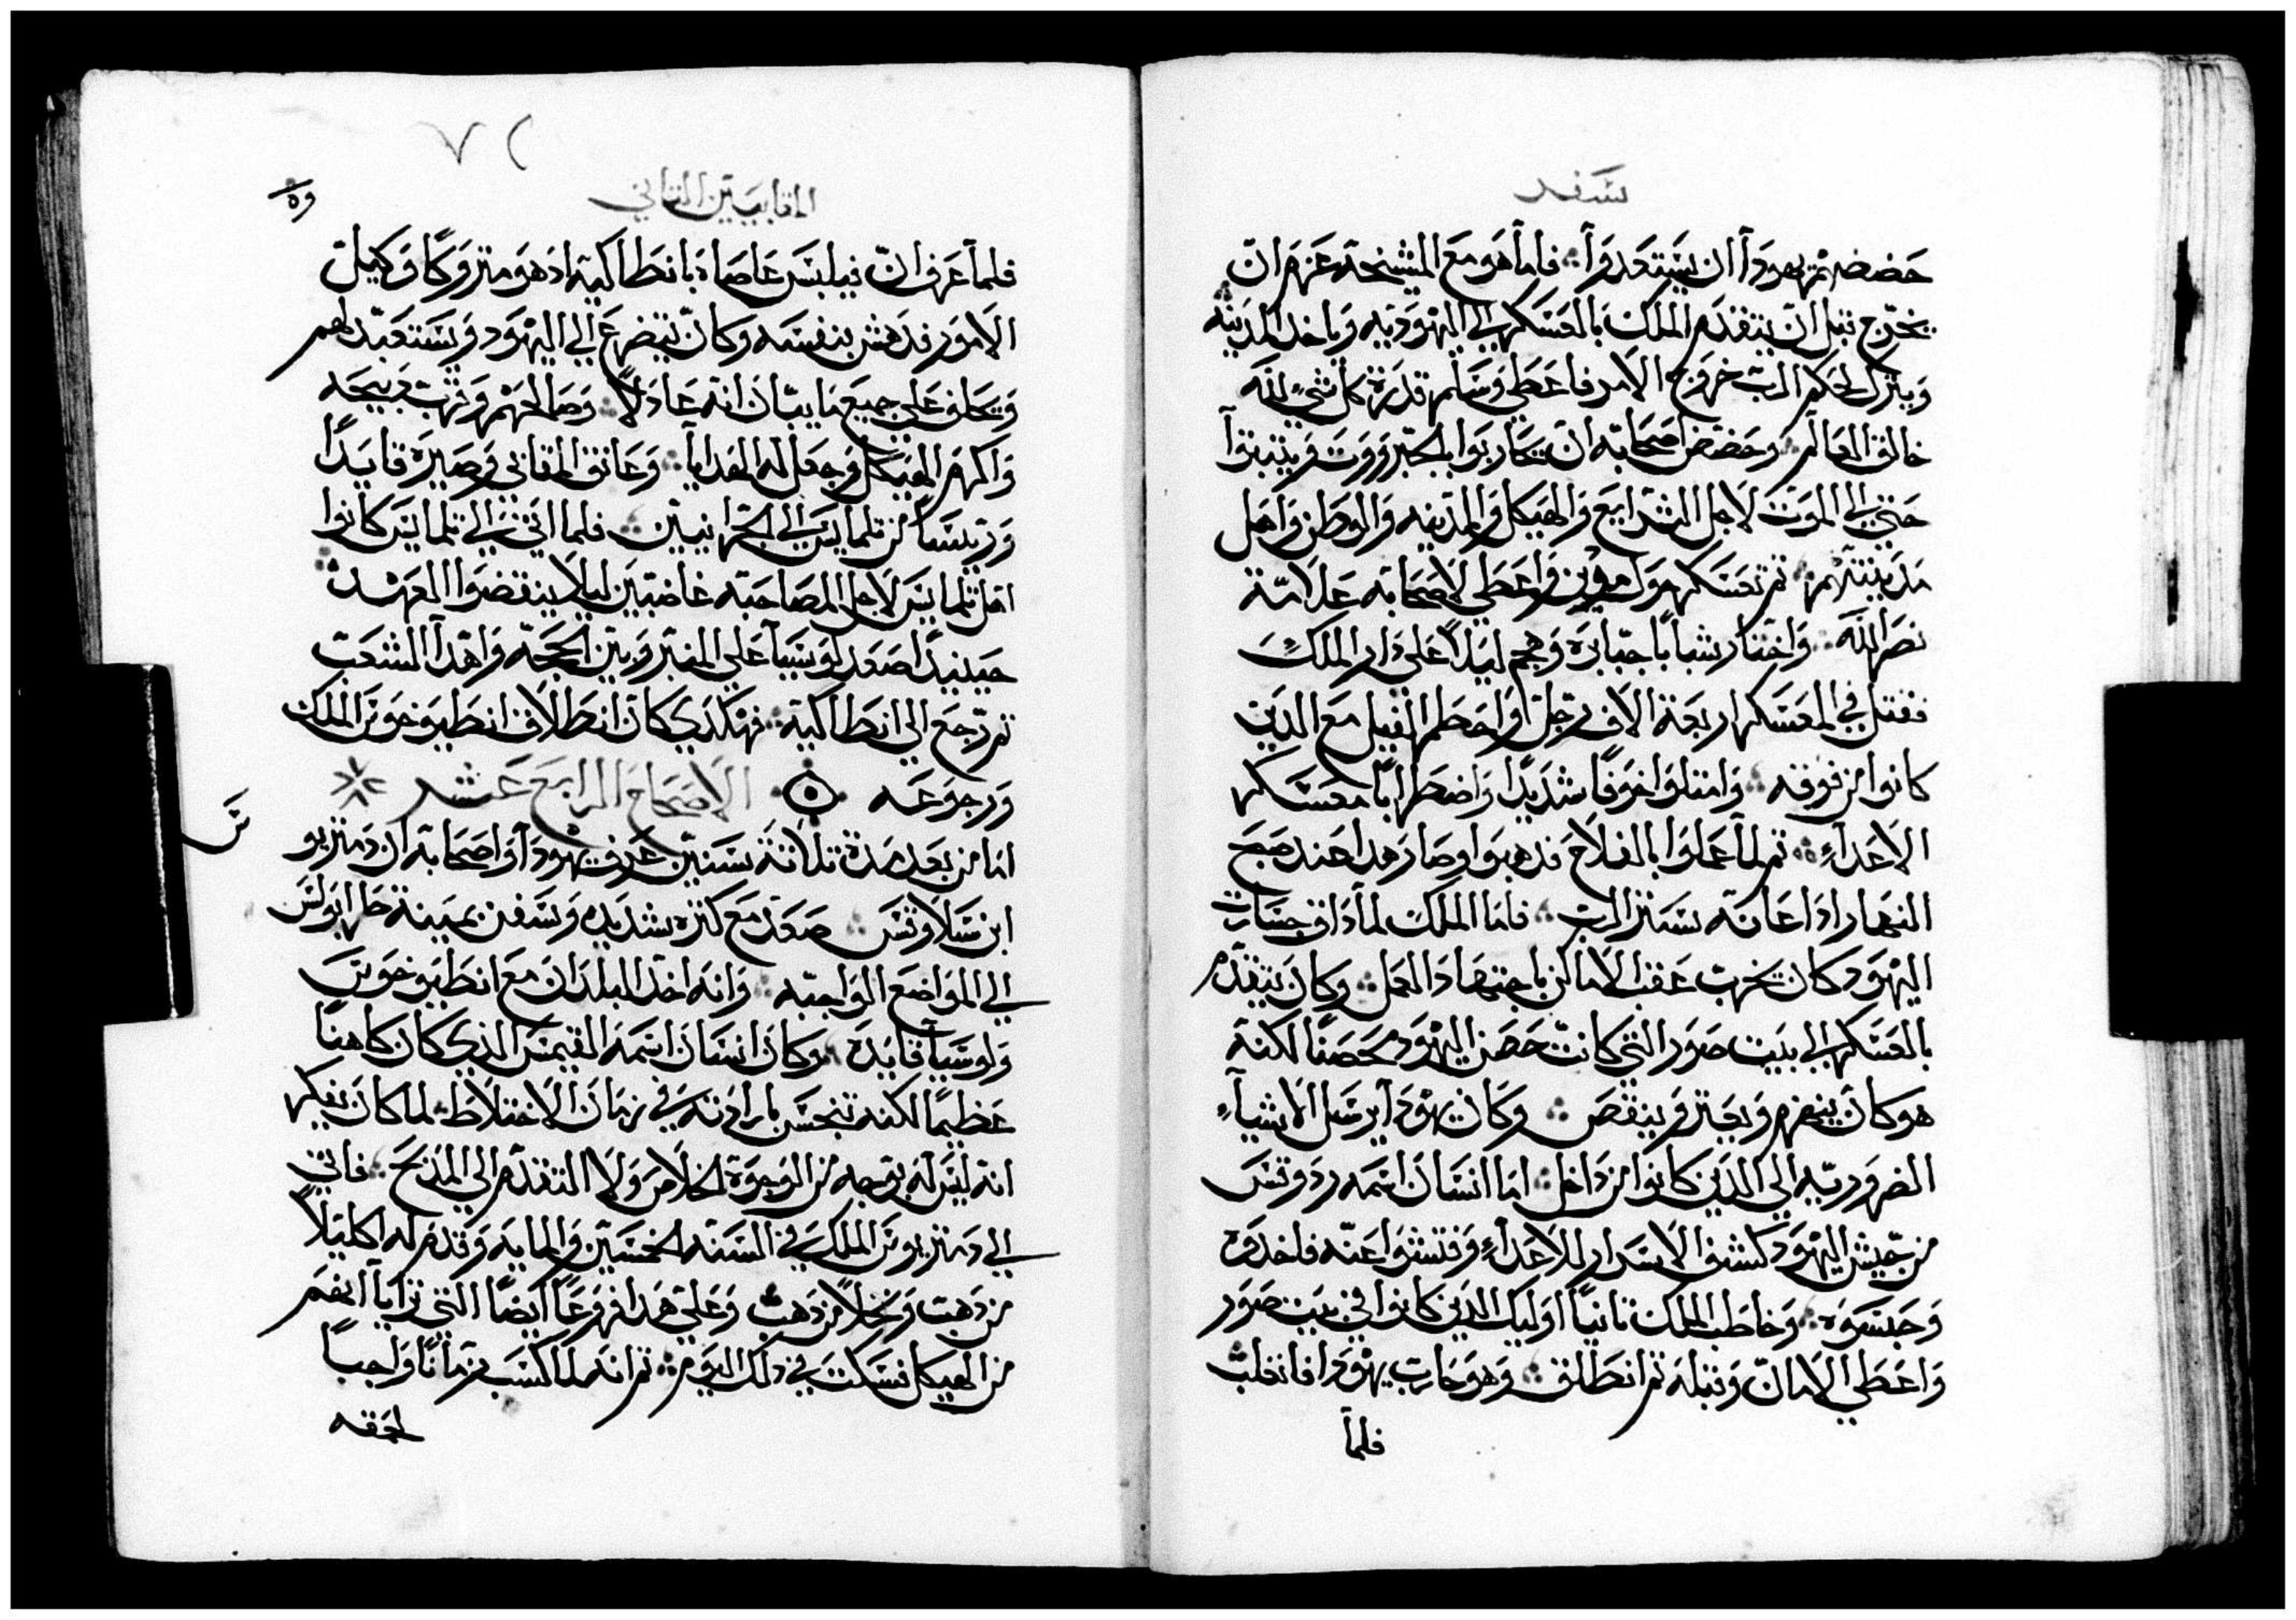 سفر
حضضهم يهودا ان يستعدوا فاما هو مع المشيخة عزم ان
يخرج قبل ان يتقدم الملك بالعسكر الي اليهودية وياخذ المدينه
ويترك لحكم الرب خروج الامر فاعطي وسلم قدرة كل شي لله
خالق العالم وحضض اصحابه ان يحاربوا بالجبروروت ويثبتوا
حتي الي الموت لاجل الشرايع والهيكل والمدينه والوطن واهل
مدينتهم ثم تعسكر حول مودين واعطي لاصحابه علامة
نصر الله واختار شبابا جبابره وهجم ليلا علي دار الملك
فقتل في المعسكر اربعة الاف رجل واحطم الفيل مع الدين
كانوا من فوقه وامتلوا خوفا شديدا واضطرابا معسكر
الاعداء ثم لما عملوا بالفلاح فدهبوا وصار هدا عند صبح
النهار ادا عانه ستر الرب فاما الملك لما داق جسارت
اليهود كان يخرب عقب الاماكن باجتهاد العمل وكان يتقدم
بالعسكر الي بيت صور التي كانت حصن اليهود محصنا لكنه
هو كان ينهزم ويعتر وينقص وكان يهودا يرسل الاشياء
الضروريه الي الدين كانوا من داخل اما انسان اسمه ردوقس
من جيش اليهود كشف الاسرار للاعداء وفتشوا عنه فاخدوه
وحبسوه وخاطب الملك تانيا اوليك الدين كانوا في بيت صور
واعطي الامان وقبله ثم انطلق وهو حارب يهودا فانغلب
فلما
٧٢
المقابيين التاني
فلما عرف ان فيلبس عاصاه بانطاكية اد هو متروكا وكيل
الامور فدهش بنفسه وكان يتضرع الي اليهود ويستعبد لهم
ويحلف علي جميع ما يبان انه عادلا وصالحهم وقرب دبيحه
واكرم الهيكل وجعل له الهدايا وعانق المقابي وصيره قايدا
وريسا من تلمايس الي الجرانيين فلما اتي الي تلمايس كانوا
اهل تلمايس لاجل المصاحبه غاضبين ليلا ينقضوا العهد
حينيدا صعد لوسيا علي المنبر وبين الحجه واهدا الشعب
ثم رجع الي انطاكية فهكدي كان انطلاق انطيوخوس الملك
ورجوعه الاصحاح الرابع عشر
اما من بعد مدة تلاتة سنين عرف يهودا واصحابه ان دمتريو
ابن سلاوقس صعد مع كتره شديده وسفن بمينة طرابولس
الي المواضع الواجبه وانه اخد البلدان مع انطيوخوس
ولوسيا قايده وكان انسان اسمه القيمس الدي كان كاهنا
عظيما لكنه تنجس بارادته في زمان الاختلاط لما كان يفكر
انه ليس له بوجه من الوجوه خلاص ولا التقدم الي المدبح فاتي
الي دمتريوس الملك في السنه الخمسين والمايه وقدم له اكليلا
من دهب ونخلا من دهب وعلي هدا فروعا ايضا التي ترايا انهم
من الهيكل فسكت في دلك اليوم ثم انه لما كسب زمانا واجبا
لحمقه